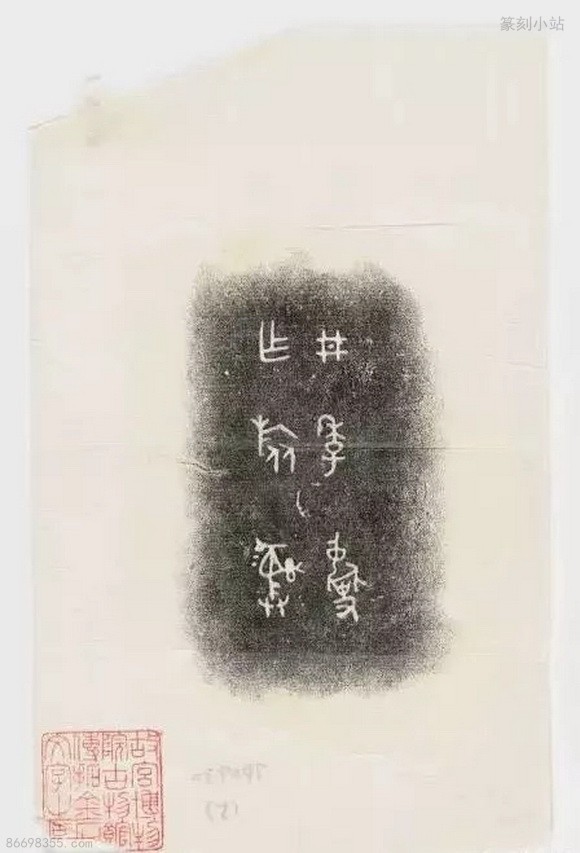 篆刻小站
井季夐
乍旅彝
故宮博物
院古物館
傳拓金石
文字之
86698355.com